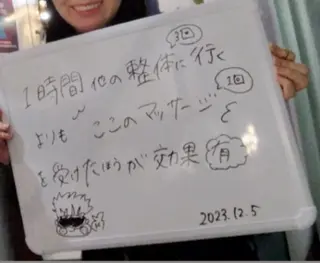 3回
1時間 他の整体に行く
1回
よりも ここのマッサージを
を受けたほうが効果 有
2023.12.5